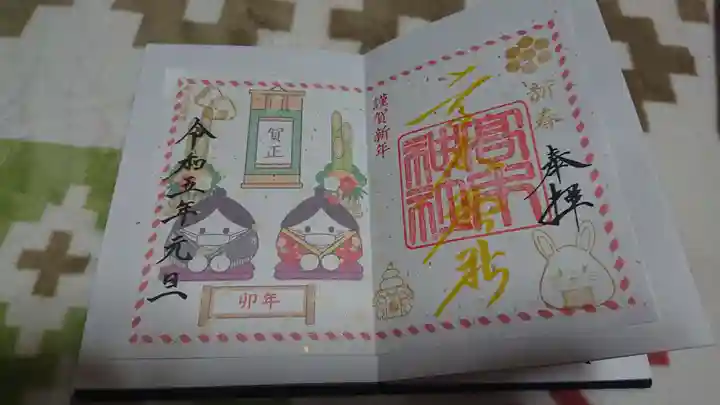 新春
奉拝
高木神社
高木
神社
謹賀新年
賀正
卯年
令和五年元旦